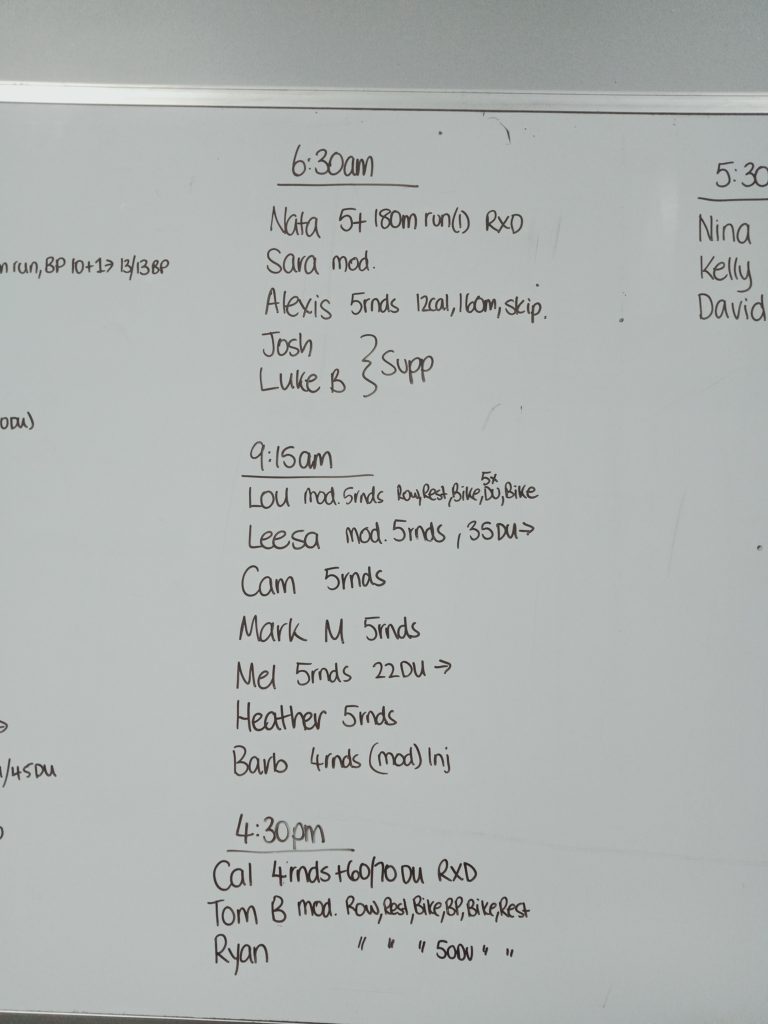 n run, BP 10+1→ 13/13BP
ODU)
/45DU
6:30am
Nata 5+ 180m run(1) RXD
Sara mod.
Alexis 5rnds 12cal, 160m, skip.
Josh
Luke B } Supp
9:15am
Lou mod. 5rnds Row, Rest, Bike, 5x DU, Bike
Leesa mod. 5rnds , 35DU→
Cam 5rnds
Mark M 5rnds
Mel 5rnds 22DU →
Heather 5rnds
Barb 4rnds (mod) Inj
4:30pm
Cal 4rnds+60/70 DU RXD
Tom B mod. Row, Rest, Bike, BP, Bike, Rest
Ryan " " " 50DU " "
5:30
Nina
Kelly
David